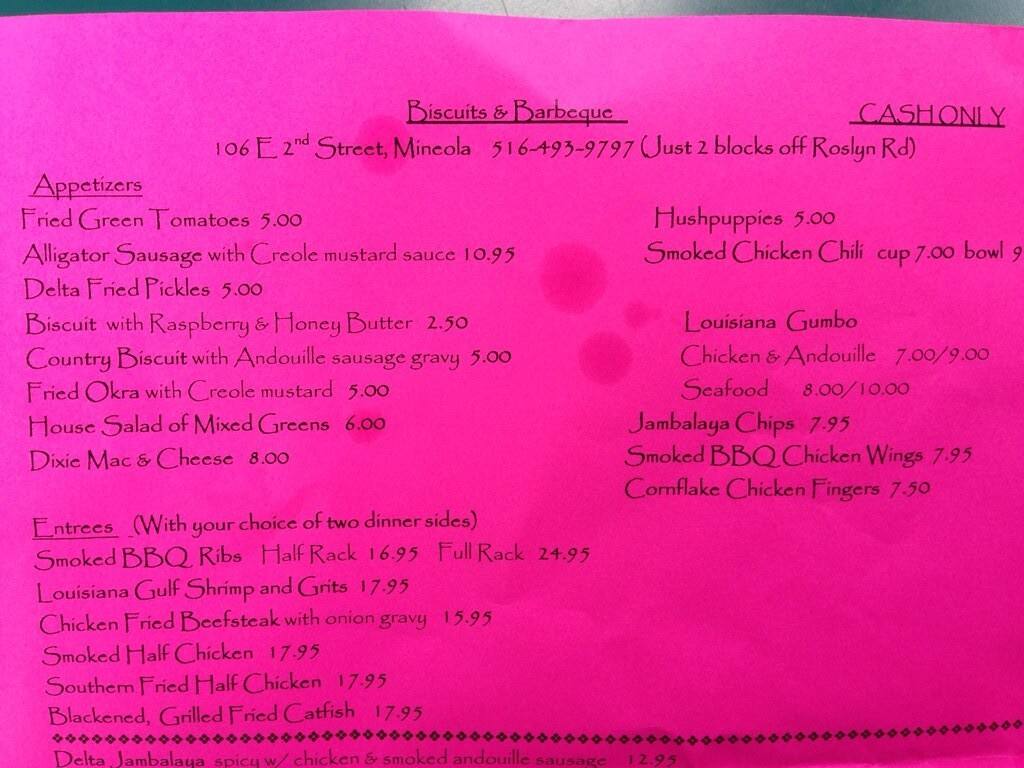 Biscuits & Barbeque CASH ONLY
106 E 2nd Street, Mineola 516-493-9797 (Just 2 blocks off Roslyn Rd)
Appetizers
Fried Green Tomatoes 5.00 Hushpuppies 5.00
Alligator Sausage with Creole mustard sauce 10.95 Smoked Chicken Chili cup 7.00 bowl 9
Delta Fried Pickles 5.00
Biscuit with Raspberry & Honey Butter 2.50 Louisiana Gumbo
Country Biscuit with Andouille sausage gravy 5.00 Chicken & Andouille 7.00/9.00
Fried Okra with Creole mustard 5.00 Seafood 8.00/10.00
House Salad of Mixed Greens 6.00 Jambalaya Chips 7.95
Dixie Mac & Cheese 8.00 Smoked BBQ Chicken Wings 7.95
Cornflake Chicken Fingers 7.50
Entrees (With your choice of two dinner sides)
Smoked BBQ Ribs Half Rack 16.95 Full Rack 24.95
Louisiana Gulf Shrimp and Grits 17.95
Chicken Fried Beefsteak with onion gravy 15.95
Smoked Half Chicken 17.95
Southern Fried Half Chicken 17.95
Blackened, Grilled Fried Catfish 17.95
Delta Jambalaya spicy w/ chicken & smoked andouille sausage 12.95